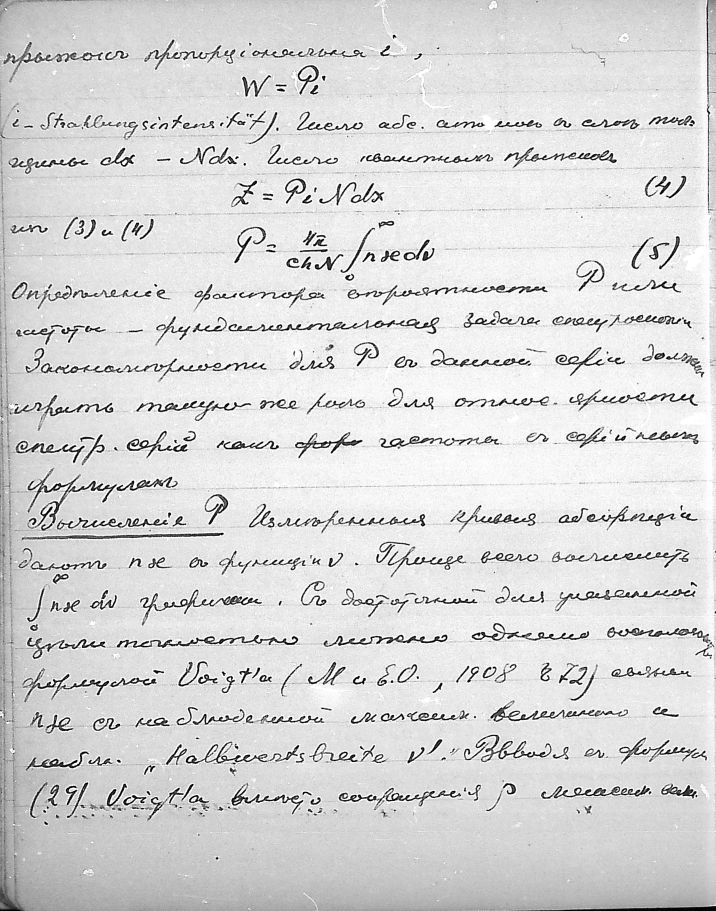 прыжокъ пропорціональна i,
W = Pi
(i – Strahlungsintensität). Число абс. атомовъ въ слоѣ тол-
щины dx – Ndx. Число квантныхъ прыжковъ
Z = PiNdx (4)
изъ (3) и (4)
P = 4π/chN ∫₀^∞ nϰdν (5)
Опредѣленіе фактора вѣроятности P или
частоты – фундаментальная задача спектроскопіи
Закономѣрности для P въ данной серіи должны
играть такую же роль для относ. яркости
спектр. серій какъ фор частоты въ серійныхъ
формулахъ
Вычисленіе P Измѣренныя кривыя абсорпціи
даютъ nϰ въ функціи ν. Проще всего вычислить
∫₀^∞ nϰ dν графически. Съ достаточной для указанной
цѣли точностью можно однако воспользоваться
формулой Voigt'a (M и E.O., 1908 § 72) связыв
nϰ съ наблюденной максим. величиною и
наблю. „Halbwertsbreite ν'". Вводя въ формул
(29) Voigt'a вмѣсто сокращенія ρ максим. вели.